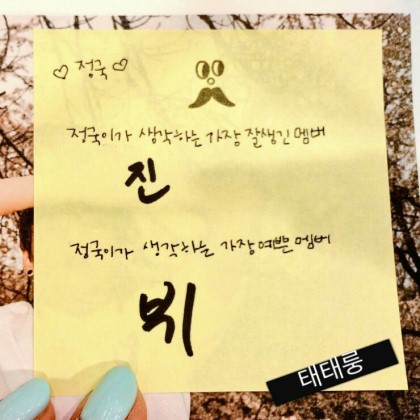 ♡정국♡
정국이가 생각하는 가장 잘생긴 멤버
진
정국이가 생각하는 가장 예쁜 멤버
뷔
태태룽